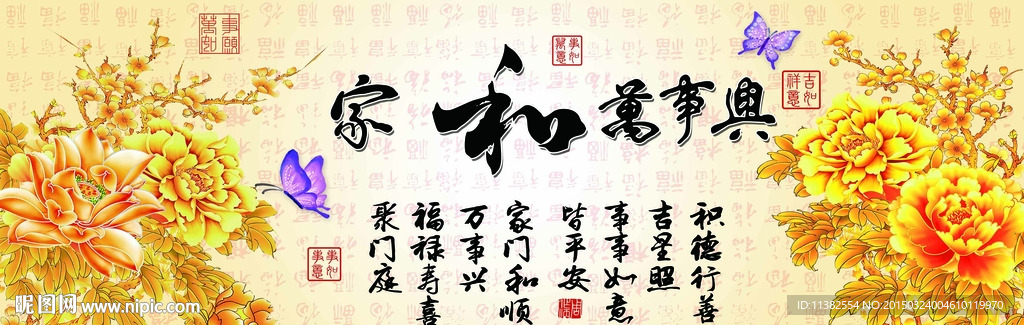 家和萬事興
積德行善
吉星照
事事如意
皆平安
家门和顺
万事兴
福禄寿喜
聚门庭
萬事如意
事如意
吉祥如意
昵图网 www.nipic.com
ID:11382554 NO:20150324004610119970